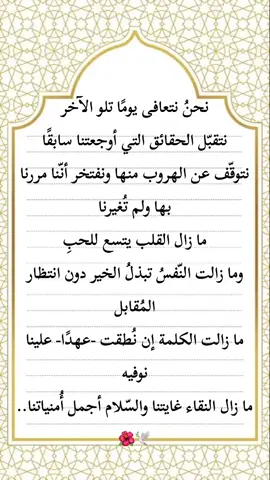 نحنُ نتعافى يومًا تلو الآخر
نتقبّل الحقائق التي أوجعتنا سابقًا
نتوقّف عن الهروب منها ونفتخر أنّنا مررنا
بها ولم تُغيرنا
ما زال القلب يتسع للحبِ
وما زالت النّفسُ تبذلُ الخير دون انتظار
المُقابل
ما زالت الكلمة إن نُطقت -عهدًا- علينا
نوفيه
ما زال النقاء غايتنا والسّلام أجمل أُمنياتنا..